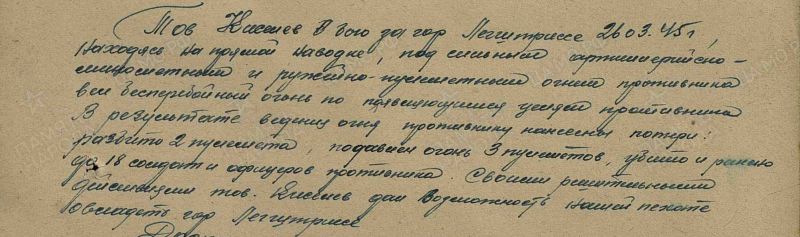 Тов Киселев в бою за гор Леггитрисс 26 03. 45 г,
находясь на прямой наводке, под сильным артиллерийско-
минометным и ружейно-пулеметным огнем противника
вел бесперебойный огонь по появляющимся целям противника
В результате ведения огня противнику нанесены потери:
разбито 2 пулемета, подавлен огонь 3 пулеметов, убито и ранено
до 18 солдат и офицеров противника. Своими решительными
действиями тов. Киселев дал возможность нашей пехоте
овладеть гор Леггитрисс